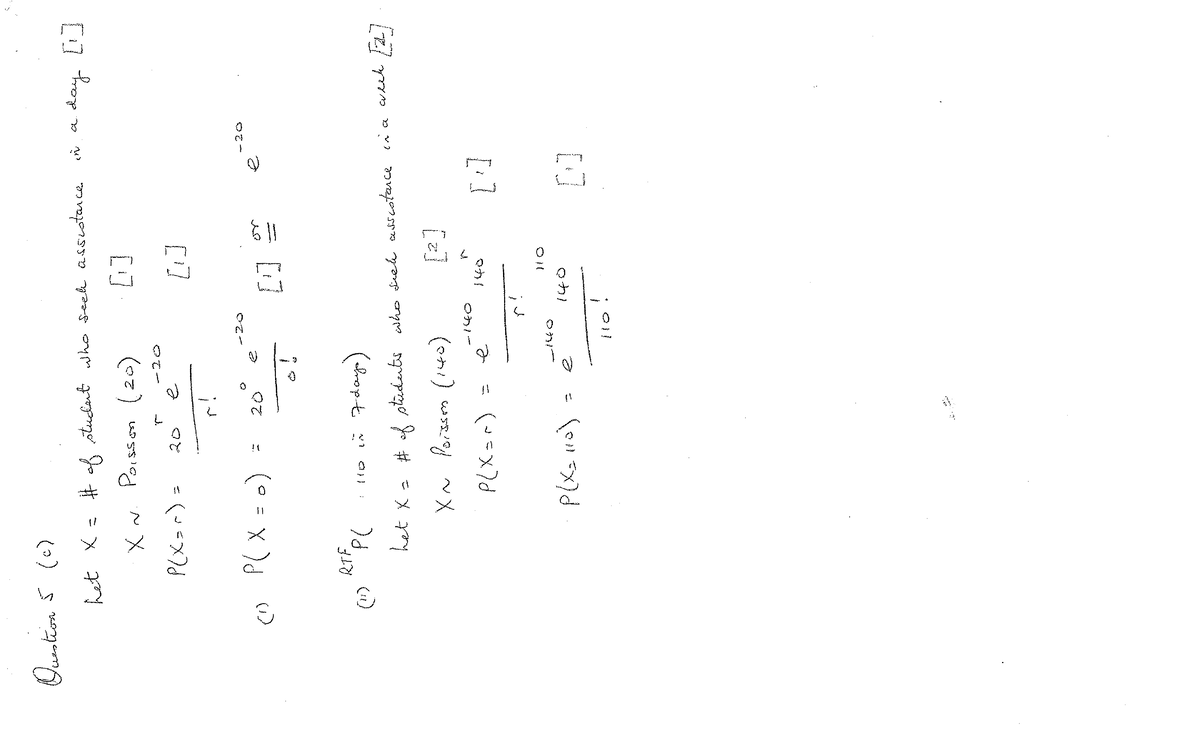 Question 5 (c)
Let X = # of student who seek assistance in a day [1]
X ~ Poisson (20) [1]
P(X=r) = 20^r e^-20 / r! [1]
(i) P(X=0) = 20^0 e^-20 / 0! [1] or e^-20
(ii) RTF P( 110 in 7 days)
Let X = # of students who seek assistance in a week [2]
X ~ Poisson (140) [2]
P(X=r) = e^-140 140^r / r! [1]
P(X=110) = e^-140 140^110 / 110! [1]